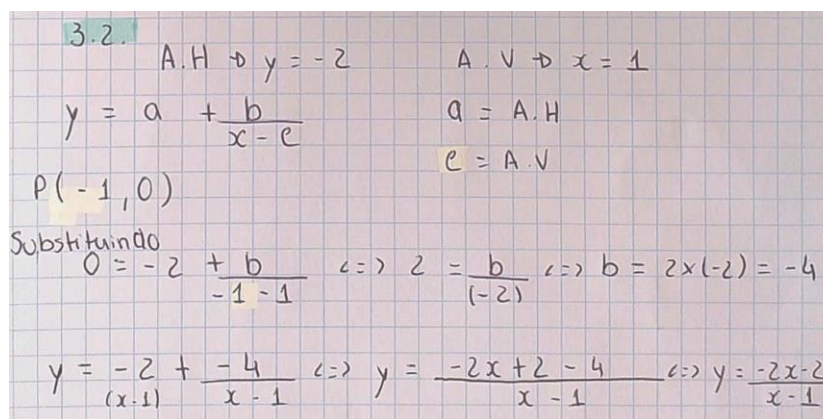 3.2.
A.H → y = -2    A.V → x = 1
y = a + b/(x - c)    a = A.H
c = A.V
P(-1,0)
Substituindo
0 = -2 + b/(-1-1) <=> 2 = b/(-2) <=> b = 2x(-2) = -4
y = -2 (x-1) + -4/(x-1) <=> y = (-2x+2-4)/(x-1) <=> y = (-2x-2)/(x-1)